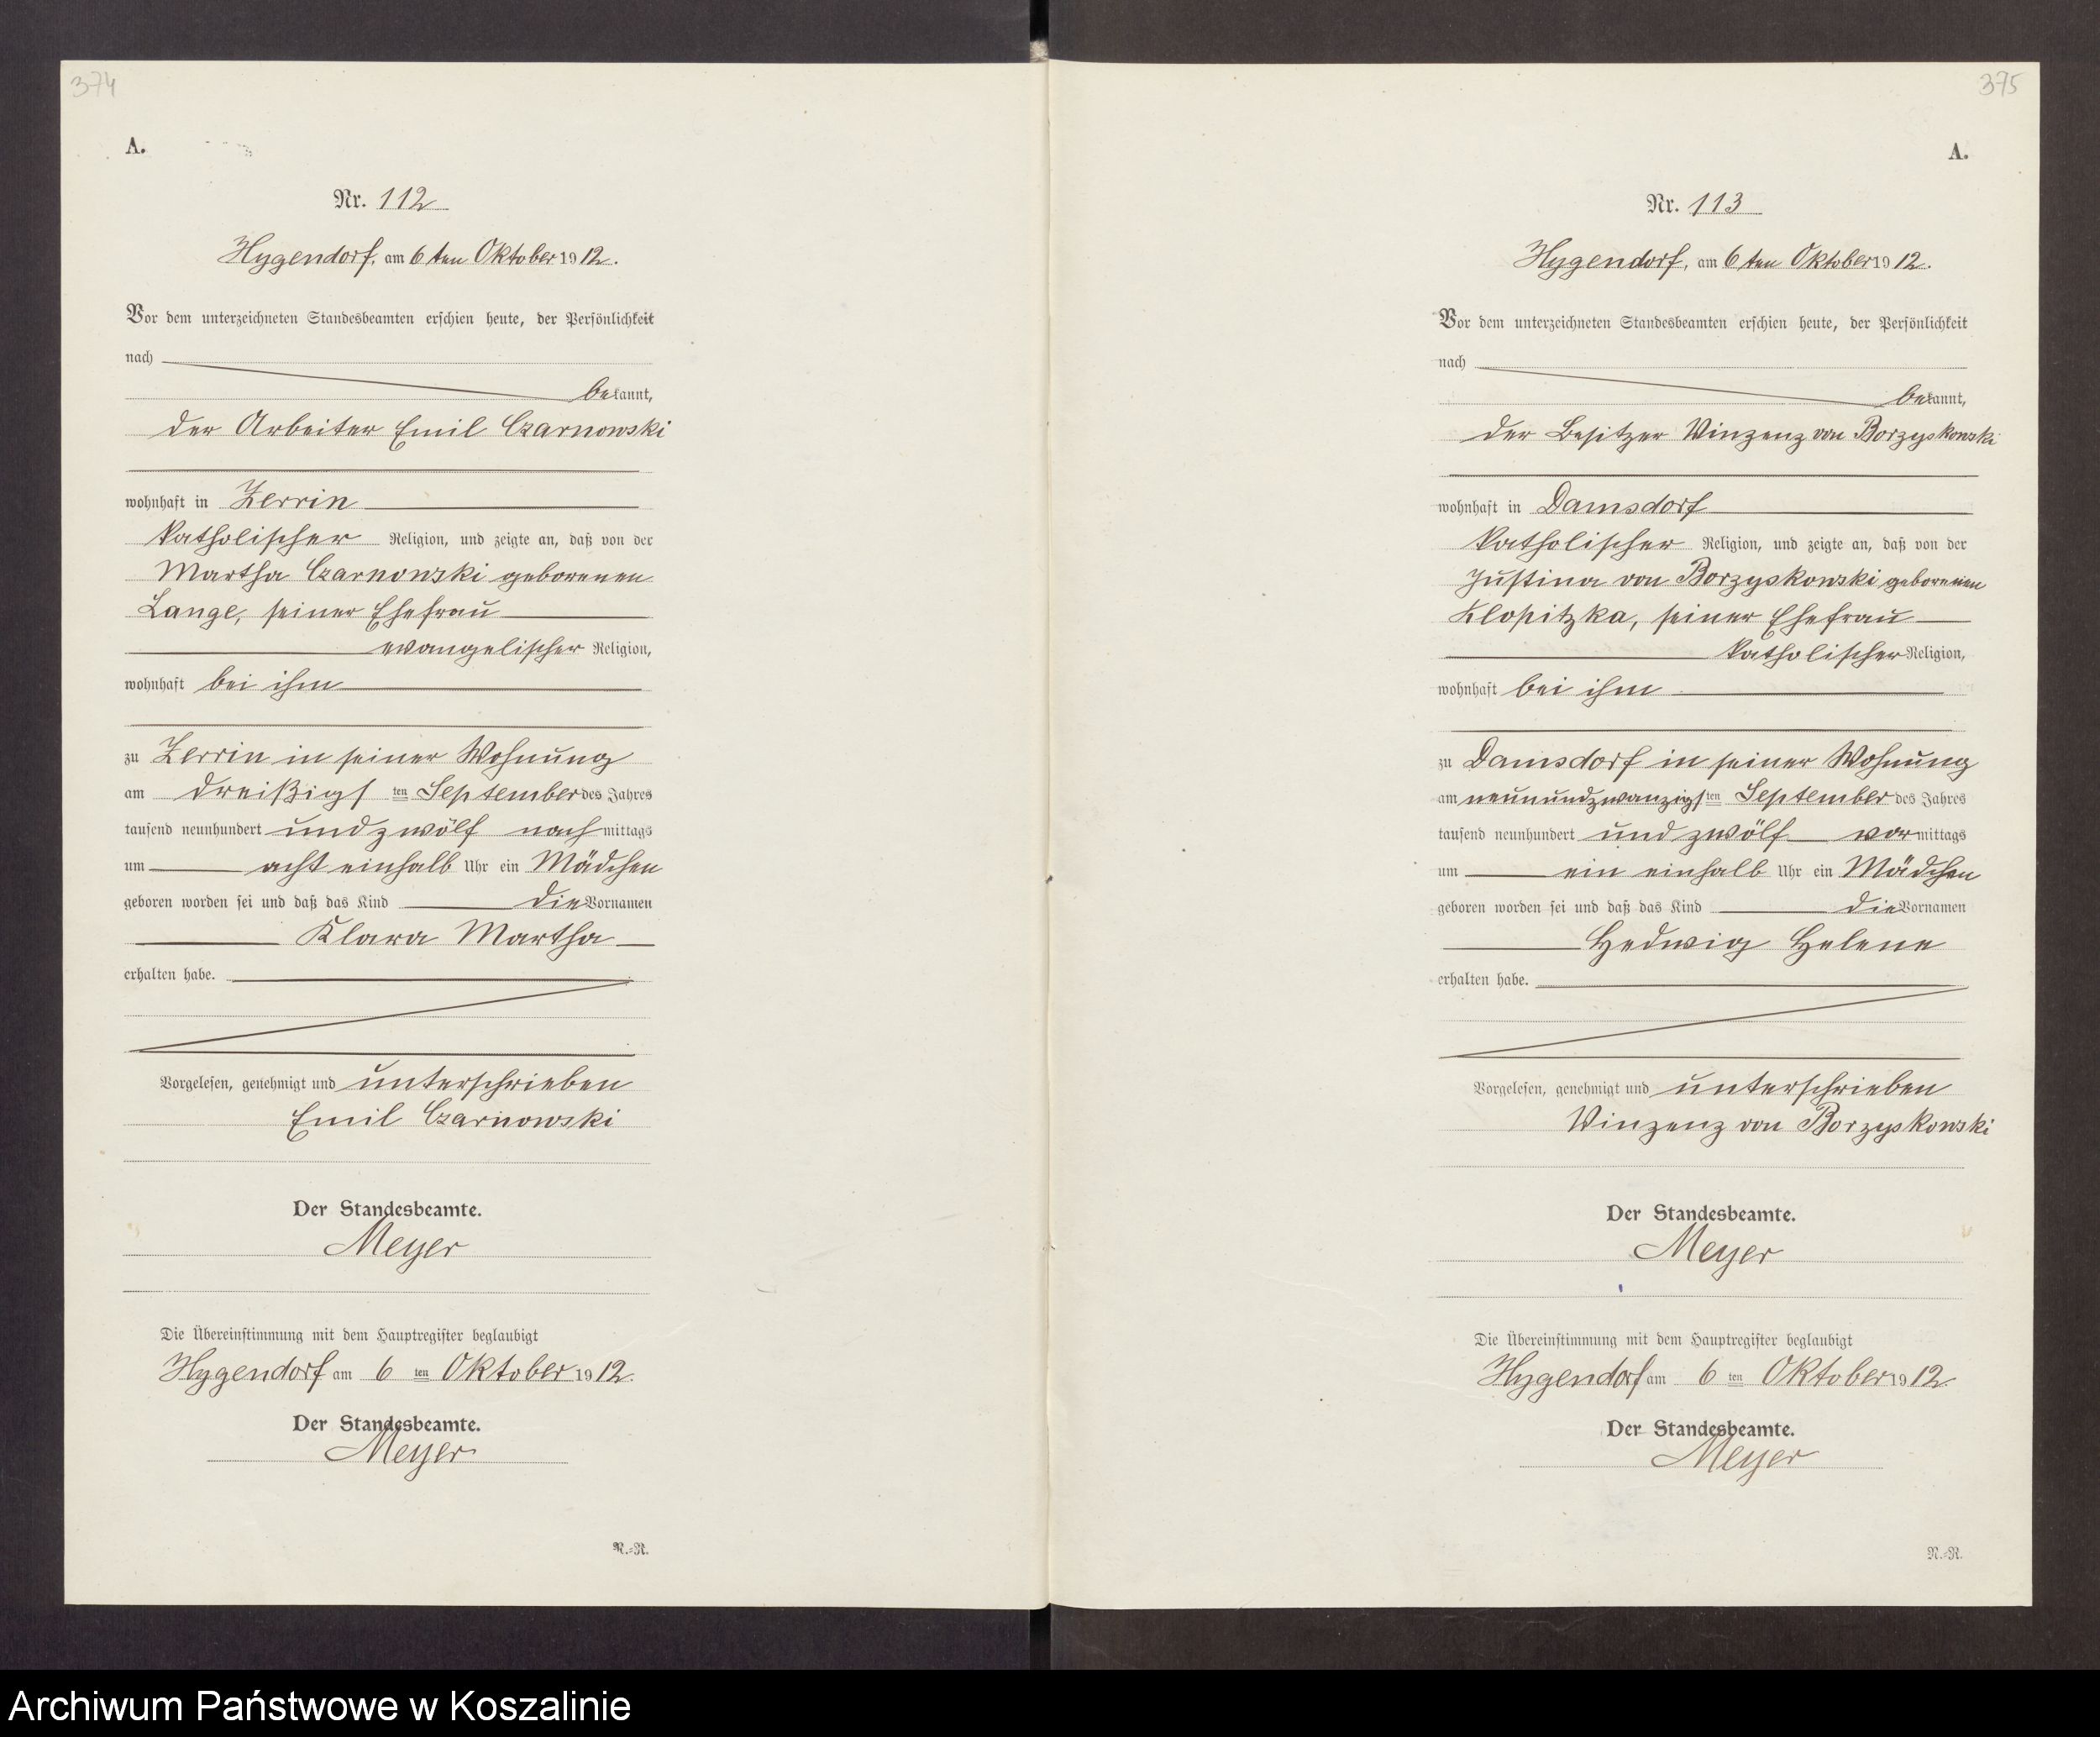 374
A.
Nr. 112
Hygendorf, am 6 ten Oktober 1912.
Vor dem unterzeichneten Standesbeamten erschien heute, der Persönlichkeit
nach
bekannt,
der Arbeiter Emil Czarnowski
wohnhaft in Zerrin
katholischer Religion, und zeigte an, daß von der
Martha Czarnowski geborenen
Lange, seiner Ehefrau
evangelischer Religion,
wohnhaft bei ihm
zu Zerrin in seiner Wohnung
am dreißigsten September des Jahres
tausend neunhundert und zwölf nachmittags
um acht einhalb Uhr ein Mädchen
geboren worden sei und daß das Kind die Vornamen
Klara Martha
erhalten habe.
Vorgelesen, genehmigt und unterschrieben
Emil Czarnowski
Der Standesbeamte.
Meyer
Die Übereinstimmung mit dem Hauptregister beglaubigt
Hygendorf am 6 ten Oktober 1912.
Der Standesbeamte.
Meyer
N.-R.
375
A.
Nr. 113
Hygendorf, am 6 ten Oktober 1912.
Vor dem unterzeichneten Standesbeamten erschien heute, der Persönlichkeit
nach
bekannt,
der Besitzer Winzenz von Borzyskowski
wohnhaft in Damsdorf
katholischer Religion, und zeigte an, daß von der
Justina von Borzyskowski geborenen
Klopitzka, seiner Ehefrau
katholischer Religion,
wohnhaft bei ihm
zu Damsdorf in seiner Wohnung
am neunundzwanzigsten September des Jahres
tausend neunhundert und zwölf vormittags
um ein einhalb Uhr ein Mädchen
geboren worden sei und daß das Kind die Vornamen
Hedwig Helene
erhalten habe.
Vorgelesen, genehmigt und unterschrieben
Winzenz von Borzyskowski
Der Standesbeamte.
Meyer
Die Übereinstimmung mit dem Hauptregister beglaubigt
Hygendorf am 6 ten Oktober 1912.
Der Standesbeamte.
Meyer
N.-R.
Archiwum Państwowe w Koszalinie